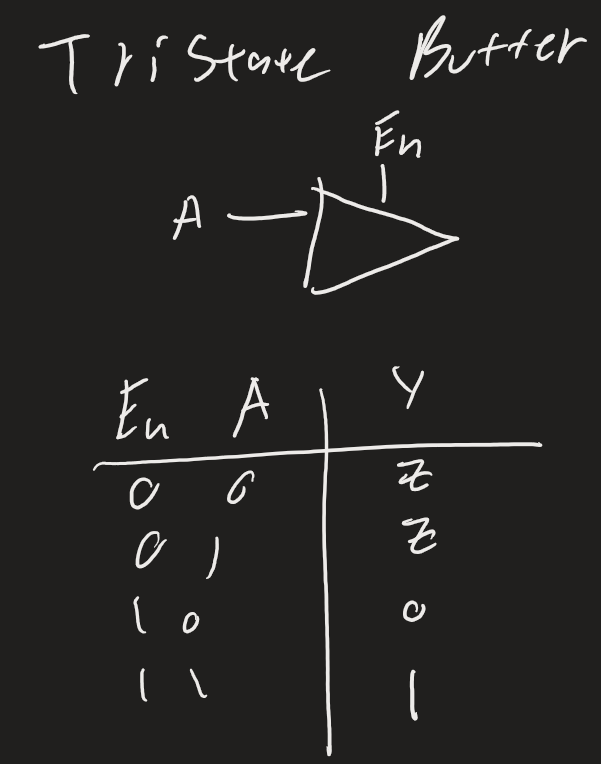 TriState Buffer
En
A
En A Y
0 0 Z
0 1 Z
1 0 0
1 1 1